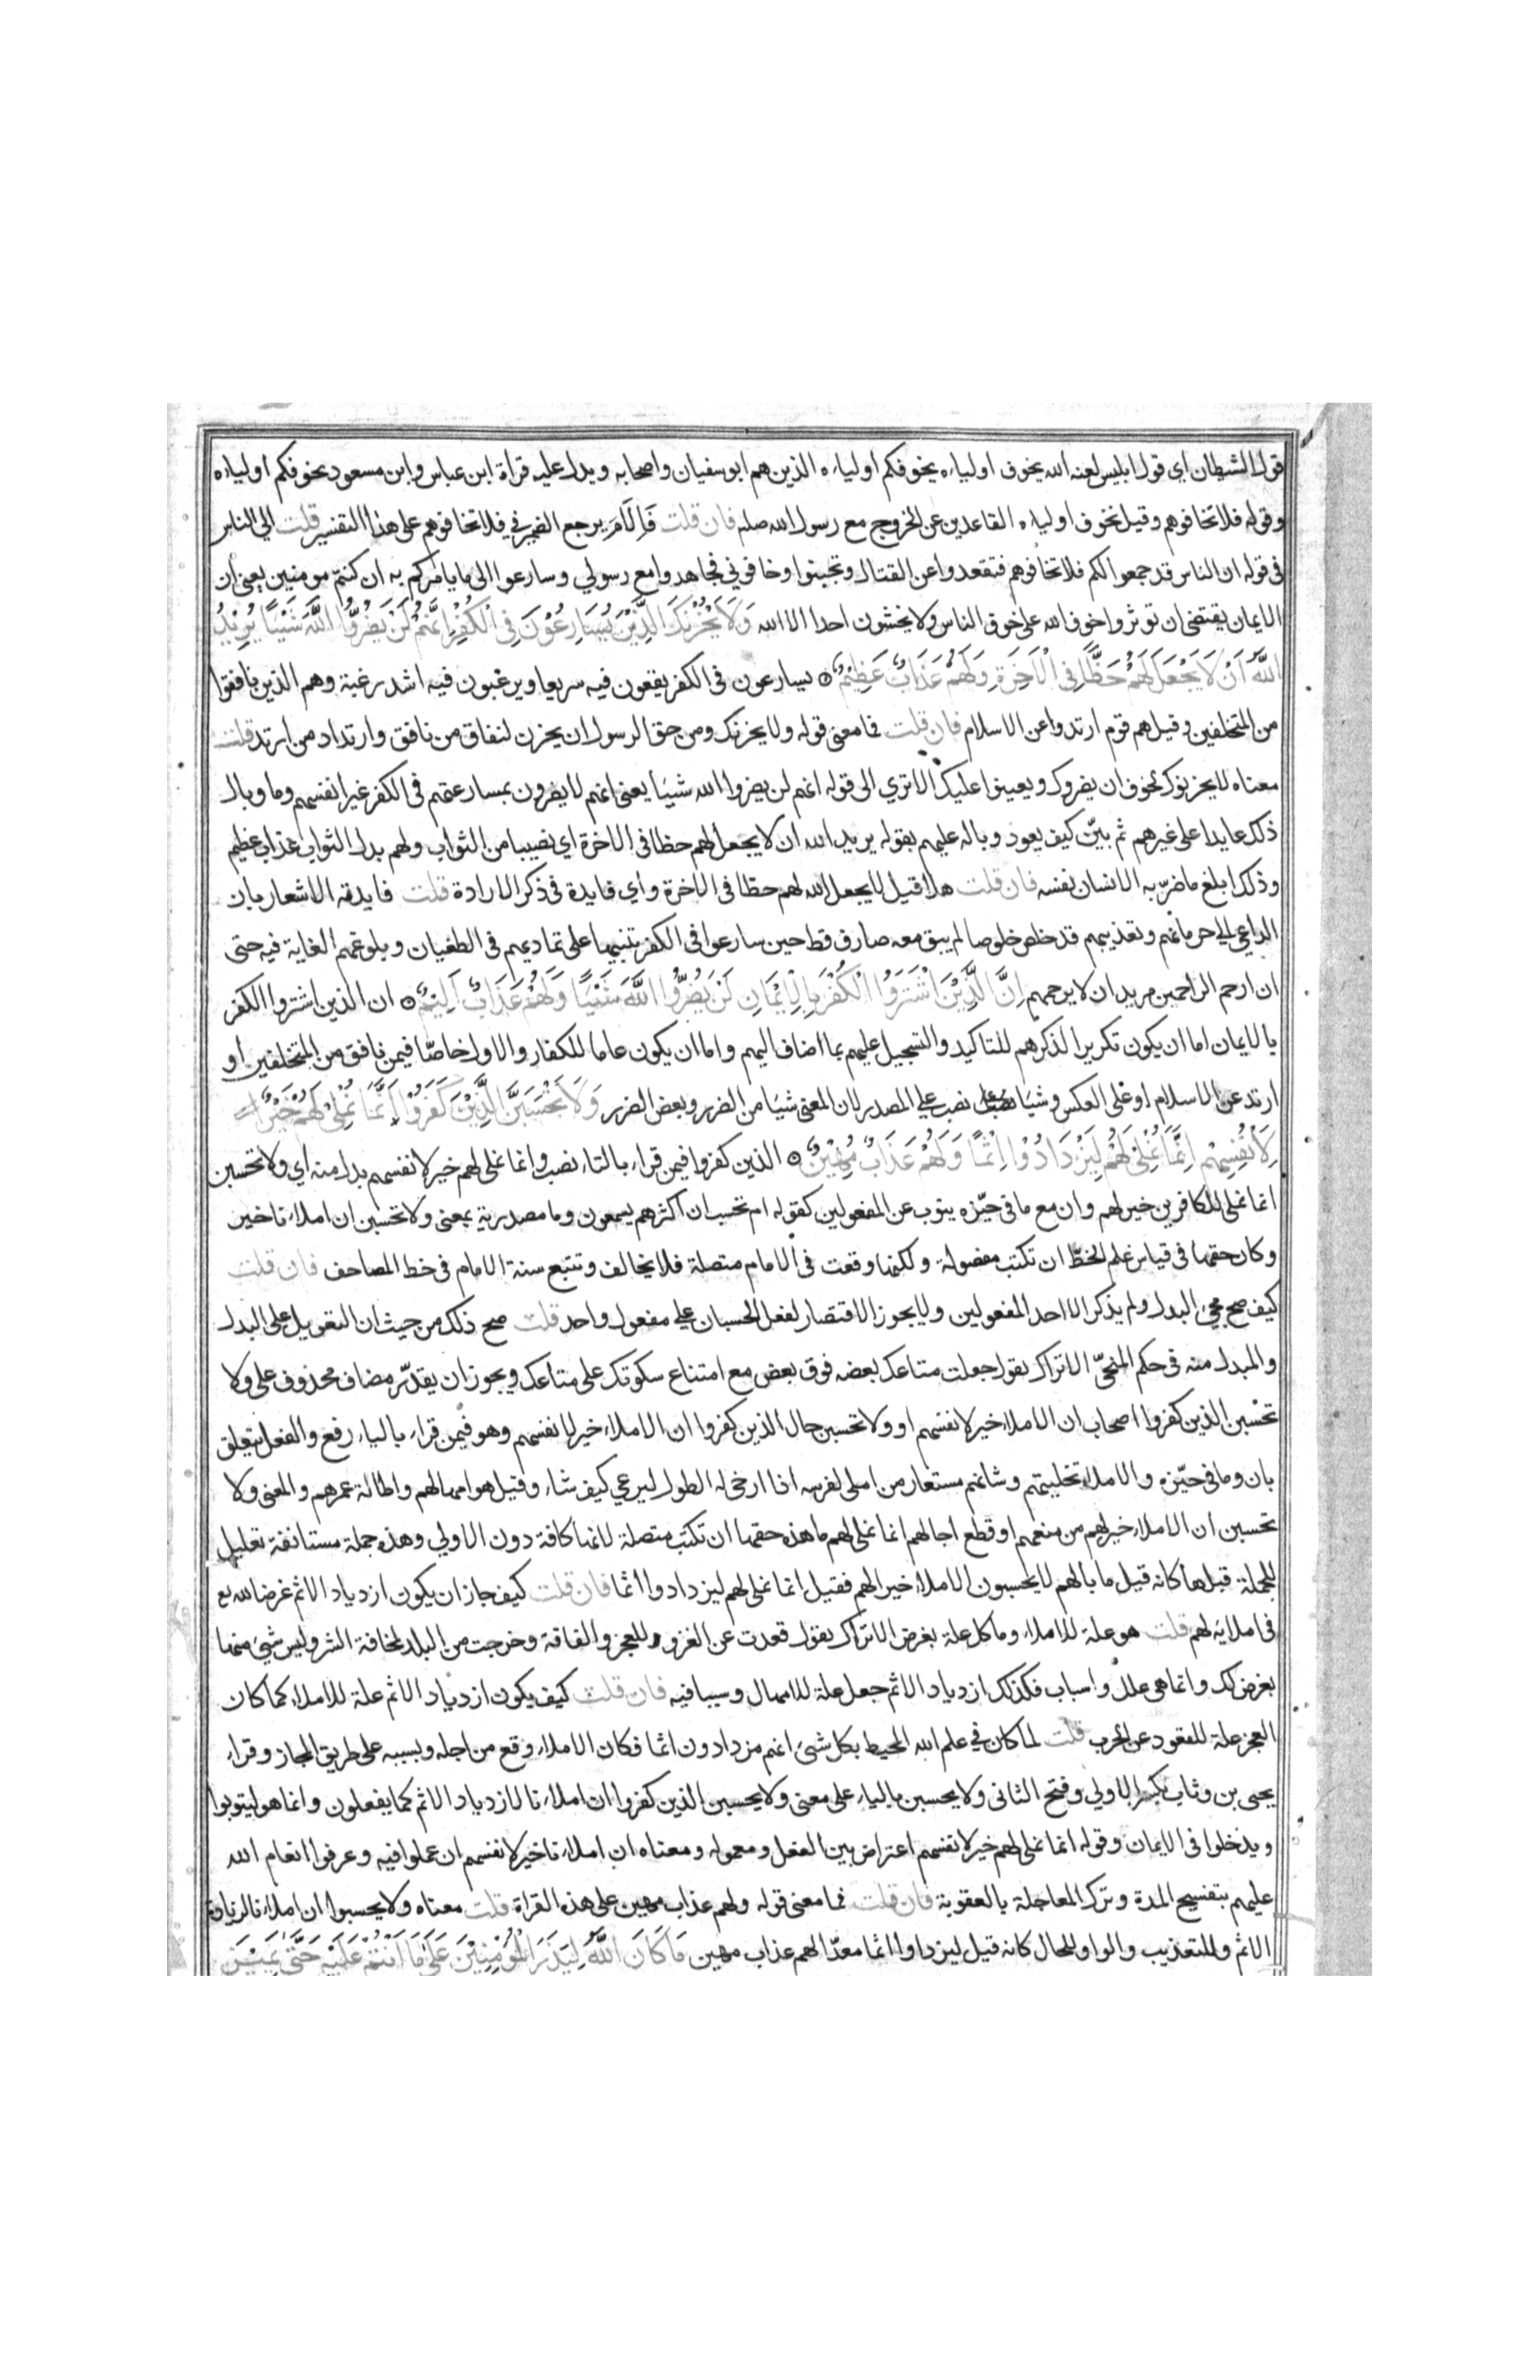 قول الشيطان اي قول ابليس لعنه الله يخوف اولياءه يخوفكم اولياءه الذين هم ابو سفيان واصحابه ويدل عليه قراة ابن عباس وابن مسعود يخوفكم اولياءه
وقوله فلا تخافوهم وقيل يخوف اولياءه القاعدين عن الخروج مع رسول الله صلم فان قلت فإلام يرجع الضمير في فلا تخافوهم على هذا التفسير قلت الى الناس
في قوله ان الناس قد جمعوا لكم فلا تخافوهم فتقعدوا عن القتال وتجبنوا وخافوني فجاهدوا مع رسولي وسارعوا الى ما يامركم به ان كنتم مومنين يعني ان
الايمان يقتضي ان توثروا خوف الله على خوف الناس ولا يخشون احدا الا الله وَلَا يَحْزُنْكَ الَّذِيْنَ يُسَارِعُوْنَ فِي الْكُفْرِ اِنَّهُمْ لَنْ يَضُرُّوا اللَّهَ شَيْئًا يُرِيْدُ
اللَّهُ اَنْ لَا يَجْعَلَ لَهُمْ حَظًّا فِي الْاٰخِرَةِ وَلَهُمْ عَذَابٌ عَظِيْمٌ ۝ يسارعون في الكفر يقعون فيه سريعا ويرغبون فيه اشد رغبة وهم الذين نافقوا
من المتخلفين وقيل هم قوم ارتدوا عن الاسلام فان قلت فما معنى قوله ولا يحزنك ومن حق الرسول ان يحزن لنفاق من نافق وارتداد من ارتد قلت
معناه لا يحزنوك لخوف ان يضروك ويعينوا عليك الا تري الى قوله انهم لن يضروا الله شيئا يعني انهم لا يضرون بمسارعتهم في الكفر غير انفسهم وما وبال
ذلك عايدا على غيرهم ثم بيّن كيف يعود وباله عليهم بقوله يريد الله ان لا يجعل لهم حظا في الاخرة اي نصيبا من الثواب ولهم بدل الثواب عذاب عظيم
وذلك ابلغ ما ضرّ به الانسان نفسه فان قلت هلا قيل لا يجعل الله لهم حظا في الاخرة واي فايدة في ذكر الارادة قلت فايدته الاشعار بان
الداعي الى حرمانهم وتعذيبهم قد خلص خلوصا لم يبق معه صارف قط حين سارعوا في الكفر تنبيها على تماديهم في الطغيان وبلوغهم الغاية فيه حتى
ان ارحم الراحمين مريد ان لا يرحمهم اِنَّ الَّذِيْنَ اشْتَرَوُا الْكُفْرَ بِالْاِيْمَانِ لَنْ يَضُرُّوا اللَّهَ شَيْئًا وَلَهُمْ عَذَابٌ اَلِيْمٌ ۝ ان الذين اشتروا الكفر
بالايمان اما ان يكون تكريرا لذكرهم للتاكيد والتسجيل عليهم بما اضاف اليهم واما ان يكون عاما للكفار والاول خاصّا فيمن نافق من المتخلفين او
ارتد عن الاسلام او على العكس وشيئا نصب علي المصدر لان المعنى شيئا من الضرر وبعض الضرر وَلَا يَحْسَبَنَّ الَّذِيْنَ كَفَرُوْا اَنَّمَا نُمْلِيْ لَهُمْ خَيْرٌ
لِاَنْفُسِهِمْ اِنَّمَا نُمْلِيْ لَهُمْ لِيَزْدَادُوْا اِثْمًا وَلَهُمْ عَذَابٌ مُهِيْنٌ ۝ الذين كفروا فيمن قراء بالتاء نصب وانما نملى لهم خير لانفسهم بدل منه اي ولا تحسبن
انما نملى للكافرين خير لهم وان مع ما في حيّزه ينوب عن المفعولين كقوله ام تحسب ان اكثرهم يسمعون وما مصدرية بمعنى ولا تحسبن ان املاءنا خير
وكان حقها في قياس علم الخطّ ان تكتب مفصولة ولكنها وقعت في الامام متصلة فلا يخالف وتتبع سنة الامام في خط المصاحف فان قلت
كيف صح مجيء البدل ولم يذكر الا احد المفعولين ولا يجوز الاقتصار لفعل الحسبان علي مفعول واحد قلت صح ذلك من حيث ان التعويل على البدل
والمبدل منه في حكم المنحّى الا تراك يقول جعلت متاعك بعضه فوق بعض مع امتناع سكوتك على متاعك ويجوز ان يقدّر مضاف محذوف على ولا
تحسبن الذين كفروا اصحاب ان الاملاء خير لانفسهم او ولا تحسبن حال الذين كفروا ان الاملاء خير لانفسهم وهو فيمن قراء بالياء رفع والفعل يتعلق
بان وما في حيّزه والاملاء تخليتهم وشانهم مستعار من املى لفرسه اذا ارخى له الطول ليرعي كيف شاء وقيل هو امهالهم واطالة عمرهم والمعنى ولا
تحسبن ان الاملاء خير لهم من منعهم او قطع اجالهم انما نملى لهم ما هذه حقها ان تكتب متصلة لانها كافة دون الاولي وهذه جملة مستانفة تعليل
للجملة قبلها كانه قيل ما بالهم لا يحسبون الاملاء خيرا لهم فقيل انما نملى لهم ليزدادوا اثما فان قلت كيف جاز ان يكون ازدياد الاثم غرضا لله تع
في املايه لهم قلت هو علة للاملاء وما كل علة بغرض الا تراك يقول قعدت عن الغزو للعجز والفاقة وخرجت من البلد لمخافة الشر وليس شيء منها
بغرض لك وانما هي علل واسباب فكذلك ازدياد الاثم جعل علة للامهال وسببا فيه فان قلت كيف يكون ازدياد الاثم علة للاملاء كما كان
العجز علة للقعود عن الحرب قلت لما كان في علم الله المحيط بكل شيء انهم مزدادون اثما فكان الاملاء وقع من اجله وبسببه على طريق المجاز وقراء
يحيى بن وثاب بكسر الاولي وفتح الثاني ولا يحسبن بالياء على معنى ولا يحسبن الذين كفروا ان املاءنا لازدياد الاثم كما يفعلون وانما هو ليتوبوا
ويدخلوا في الايمان وقوله انما نملى لهم خير لانفسهم اعتراض بين الفعل ومعموله ومعناه ان املاءنا خير لانفسهم ان عملوا فيه وعرفوا انعام الله
عليهم بتفسيح المدة وترك المعاجلة بالعقوبة فان قلت فما معنى قوله ولهم عذاب مهين على هذه القراة قلت معناه ولا يحسبوا ان املاءنا لزيادة
الاثم وللتعذيب والواو للحال كانه قيل ليزدادوا اثما معدّا لهم عذاب مهين مَا كَانَ اللَّهُ لِيَذَرَ الْمُؤْمِنِيْنَ عَلٰى مَا اَنْتُمْ عَلَيْهِ حَتّٰى يَمِيْزَ